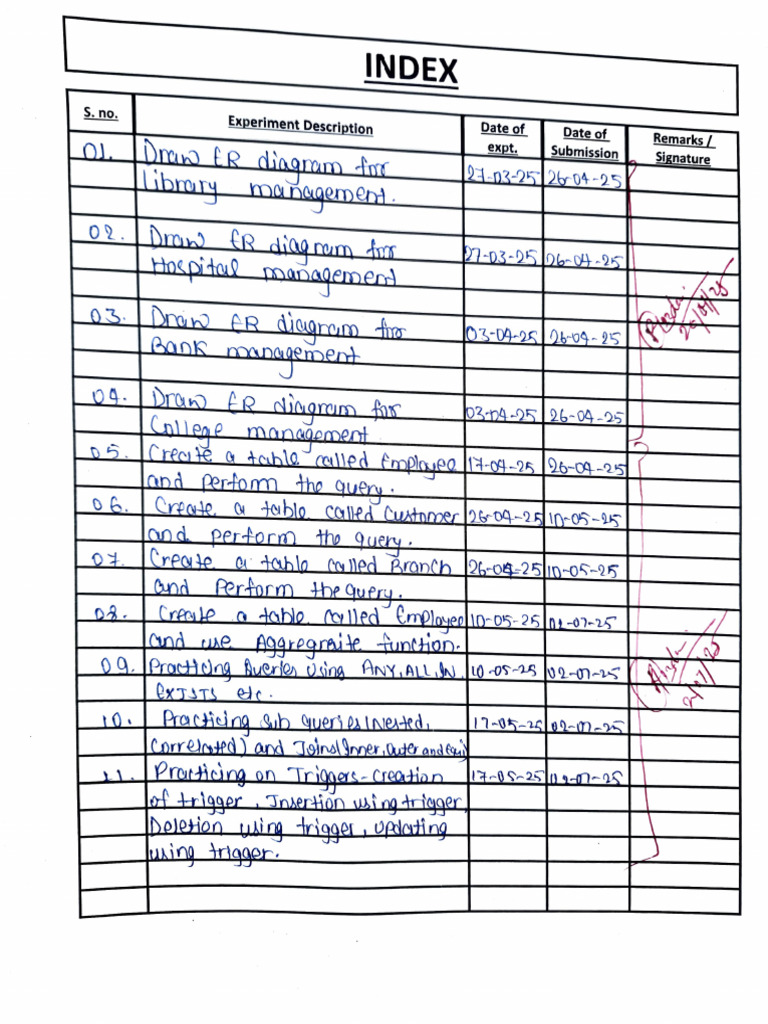 INDEX
S. no. Experiment Description Date of expt. Date of Submission Remarks / Signature
01. Draw ER diagram for 27-03-25 26-04-25
library management.
02. Draw ER diagram for 27-03-25 26-04-25
Hospital management
03. Draw ER diagram for 03-04-25 26-04-25
Bank management
04. Draw ER diagram for 03-04-25 26-04-25
College management
05. Create a table called Employee 17-04-25 26-04-25
and perform the query.
06. Create a table called Customer 26-04-25 10-05-25
and perform the query.
07. Create a table called Branch 26-04-25 10-05-25
and Perform the query.
08. Create a table called Employee 10-05-25 02-07-25
and use Aggregraite function.
09. Practicing Queries using ANY, ALL, IN 10-05-25 02-07-25
EXISTS etc.
10. Practicing sub queries (Nested, 17-05-25 02-07-25
Correlated) and Joins(Inner, Outer and Equi)
11. Practicing on Triggers-creation 17-05-25 02-07-25
of trigger, Insertion using trigger,
Deletion using trigger, updating
using trigger.